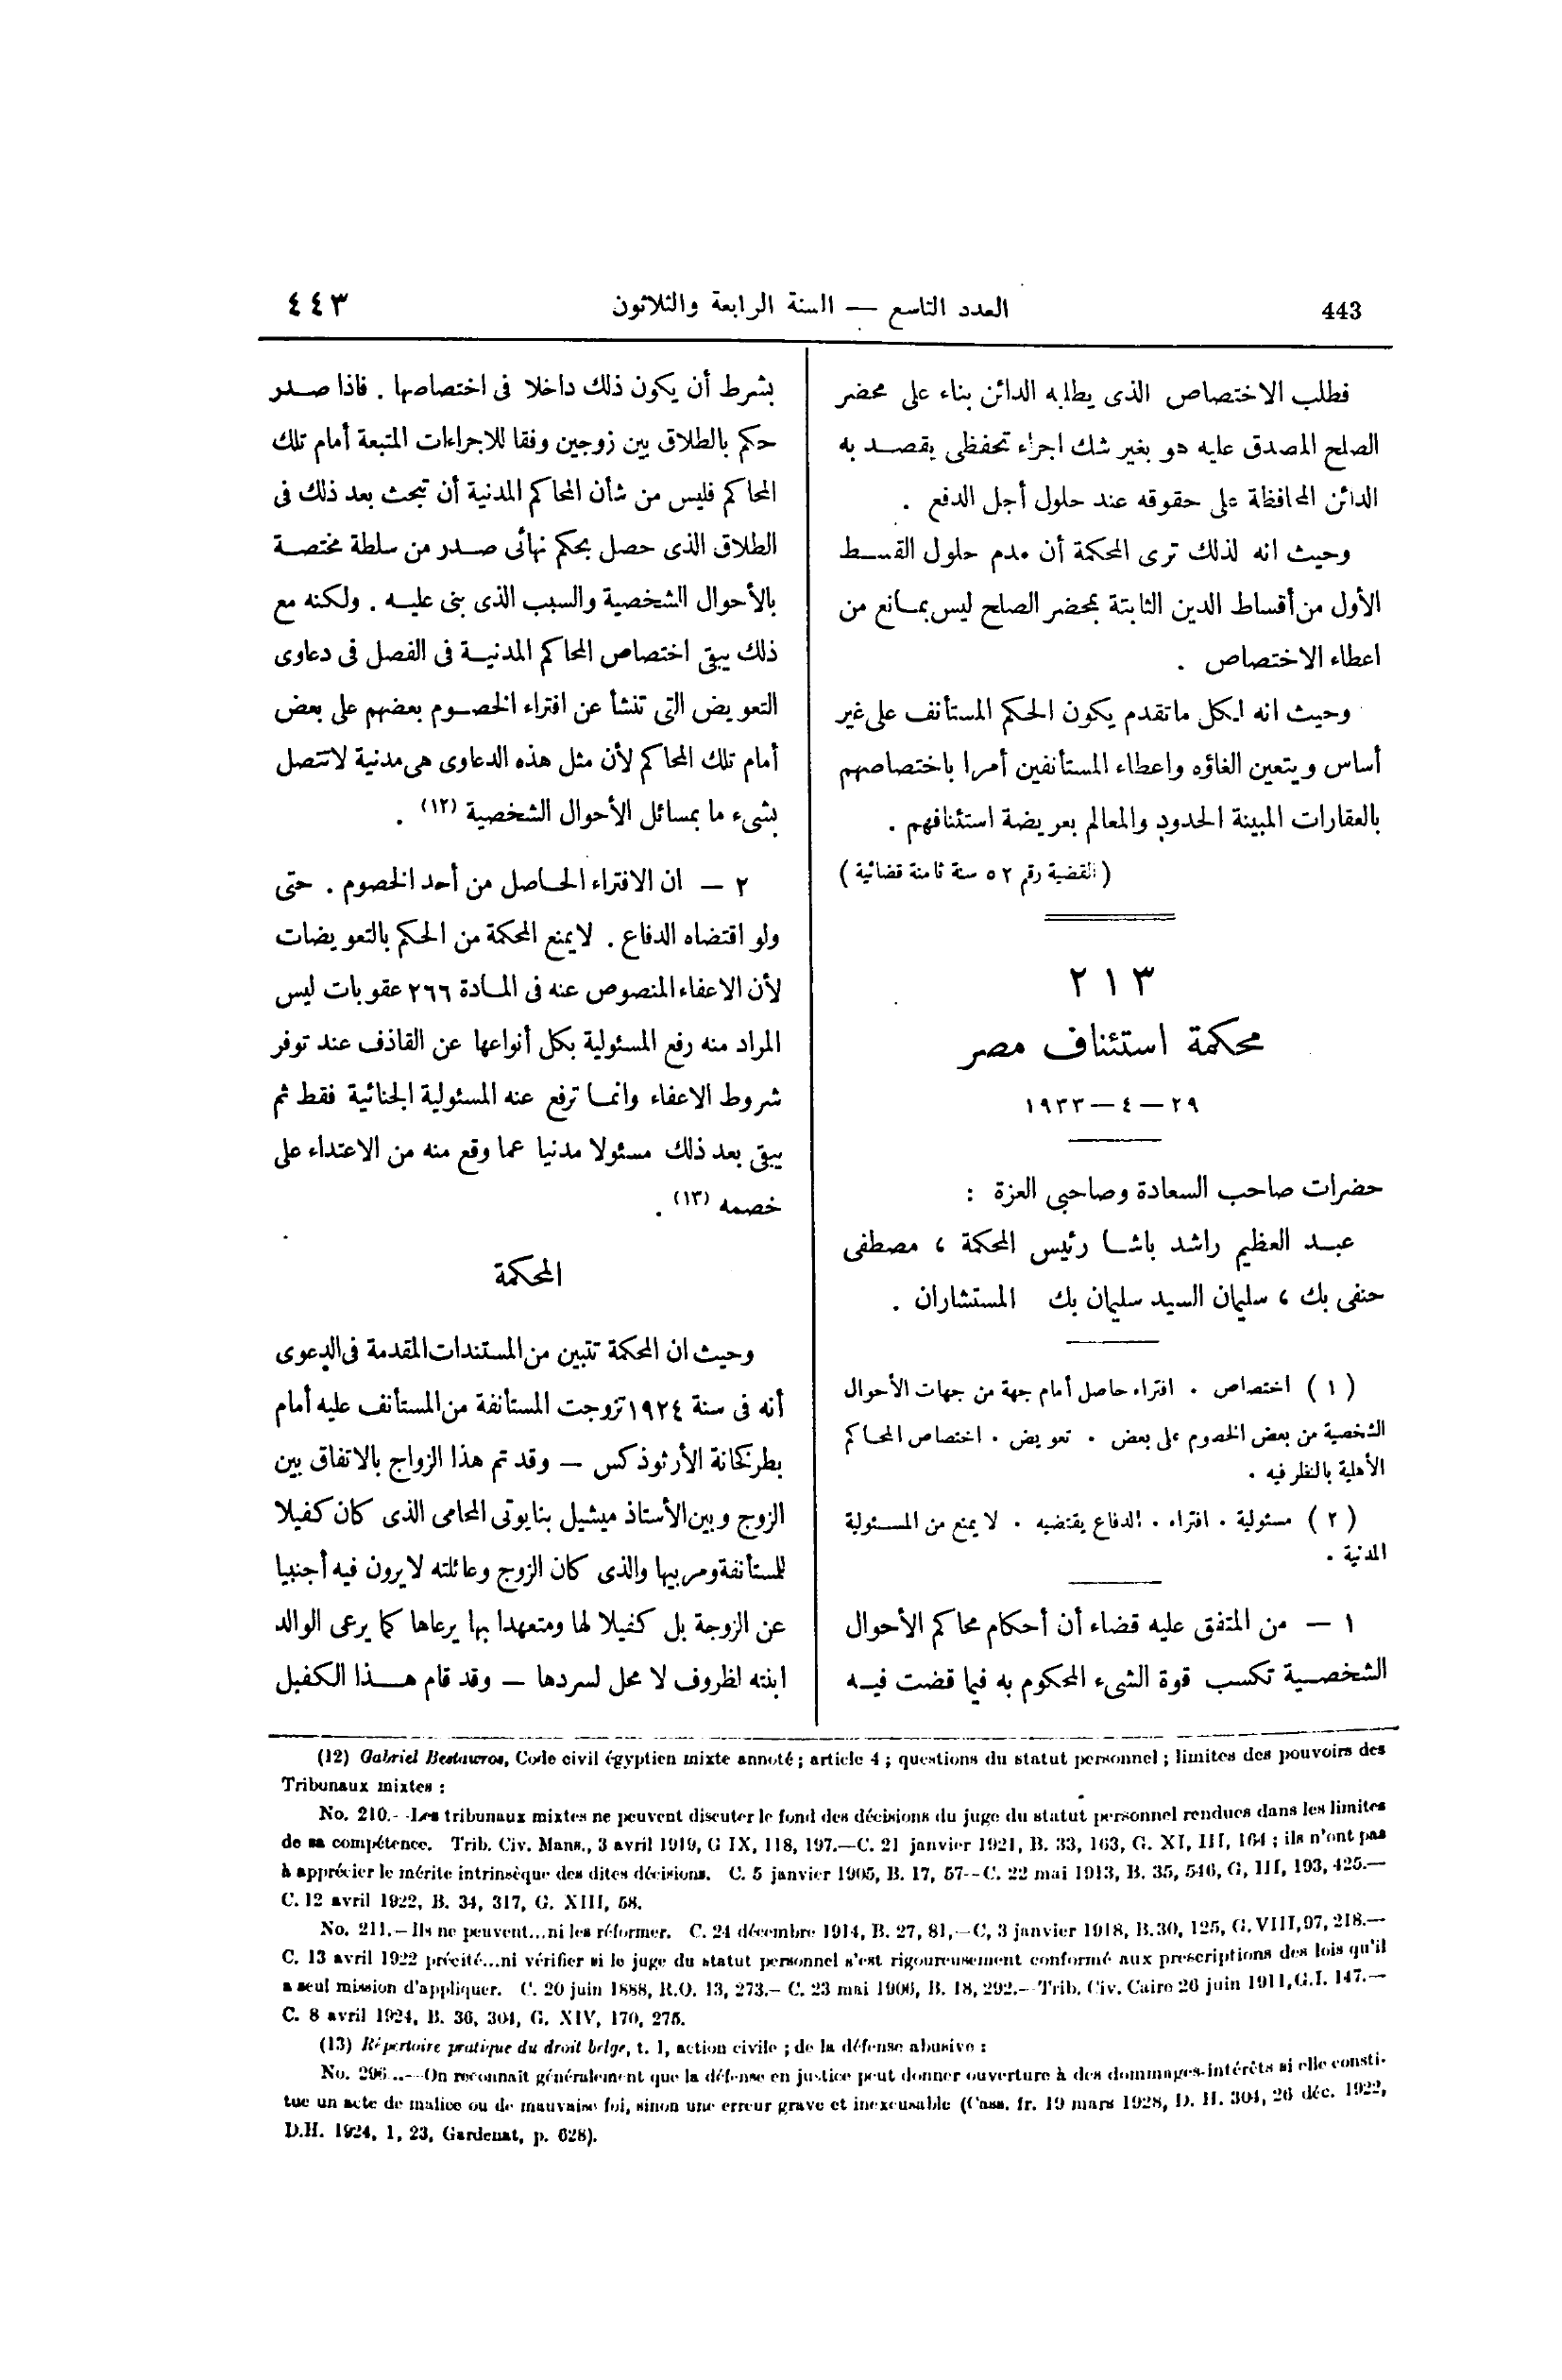 443
العدد التاسع — السنة الرابعة والثلاثون
٤٤٣
فطلب الاختصاص الذى يطلبه الدائن بناء على محضر
الصلح المصدق عليه هو بغير شك اجراء تحفظى يقصد به
الدائن المحافظة على حقوقه عند حلول أجل الدفع .
وحيث انه لذلك ترى المحكمة أن عدم حلول القسط
الأول من أقساط الدين الثابتة بمحضر الصلح ليس بمانع من
اعطاء الاختصاص .
وحيث انه لكل ماتقدم يكون الحكم المستأنف على غير
أساس ويتعين الغاؤه واعطاء المستأنفين أمرا باختصاصهم
بالعقارات المبينة الحدود والمعالم بعريضة استئنافهم .
( القضية رقم ٥٢ سنة ثامنة قضائية )
٢١٣
محكمة استئناف مصر
٢٩ — ٤ — ١٩٣٣
حضرات صاحب السعادة وصاحبى العزة :
عبد العظيم راشد باشا رئيس المحكمة ، مصطفى
حنفى بك ، سليمان السيد سليمان بك المستشاران .
( ١ ) اختصاص . افتراء حاصل أمام جهة من جهات الأحوال
الشخصية من بعض الخصوم على بعض . تعويض . اختصاص المحاكم
الأهلية بالنظر فيه .
( ٢ ) مسئولية . افتراء . الدفاع يقتضيه . لا يمنع من المسئولية
المدنية .
١ — من المتفق عليه قضاء أن أحكام محاكم الأحوال
الشخصية تكسب قوة الشىء المحكوم به فيما قضت فيه
بشرط أن يكون ذلك داخلا فى اختصاصها . فاذا صدر
حكم بالطلاق بين زوجين وفقا للاجراءات المتبعة أمام تلك
المحاكم فليس من شأن المحاكم المدنية أن تبحث بعد ذلك فى
الطلاق الذى حصل بحكم نهائى صدر من سلطة مختصة
بالأحوال الشخصية والسبب الذى بنى عليه . ولكنه مع
ذلك يبقى اختصاص المحاكم المدنية فى الفصل فى دعاوى
التعويض التى تنشأ عن افتراء الخصوم بعضهم على بعض
أمام تلك المحاكم لأن مثل هذه الدعاوى هى مدنية لاتتصل
بشىء ما بمسائل الأحوال الشخصية (١٢) .
٢ — ان الافتراء الحاصل من أحد الخصوم . حتى
ولو اقتضاه الدفاع . لايمنع المحكمة من الحكم بالتعويضات
لأن الاعفاء المنصوص عنه فى المادة ٢٦٦ عقوبات ليس
المراد منه رفع المسئولية بكل أنواعها عن القاذف عند توفر
شروط الاعفاء وانما ترفع عنه المسئولية الجنائية فقط ثم
يبقى بعد ذلك مسئولا مدنيا عما وقع منه من الاعتداء على
خصمه (١٣) .
المحكمة
وحيث ان المحكمة تتبين من المستندات المقدمة فى الدعوى
أنه فى سنة ١٩٢٤ تزوجت المستأنفة من المستأنف عليه أمام
بطركخانة الأرثوذكس — وقد تم هذا الزواج بالاتفاق بين
الزوج وبين الأستاذ ميشيل بنايوتى المحامى الذى كان كفيلا
للمستأنفة ومربيها والذى كان الزوج وعائلته لا يرون فيه أجنبيا
عن الزوجة بل كفيلا لها ومتعهدا بها يرعاها كما يرعى الوالد
ابنته لظروف لا محل لسردها — وقد قام هذا الكفيل
(12) Gabriel Bestawros, Code civil égyptien mixte annoté; article 4; questions du statut personnel; limites des pouvoirs des
Tribunaux mixtes :
No. 210.- -Les tribunaux mixtes ne peuvent discuter le fond des décisions du juge du statut personnel rendues dans les limites
de sa compétence. Trib. Civ. Mans., 3 avril 1919, G IX, 118, 197.—C. 21 janvier 1921, B. 33, 163, G. XI, III, 164 ; ils n'ont pas
à apprécier le mérite intrinsèque des dites décisions. C. 5 janvier 1905, B. 17, 57--C. 22 mai 1913, B. 35, 546, G, III, 193, 425.—
C. 12 avril 1922, B. 34, 317, G. XIII, 58.
No. 211.—Ils ne peuvent...ni les réformer. C. 24 décembre 1914, B. 27, 81,—C, 3 janvier 1918, B.30, 125, G.VIII,97, 218.—
C. 13 avril 1922 précité...ni vérifier si le juge du statut personnel s'est rigoureusement conformé aux prescriptions des lois qu'il
a seul mission d'appliquer. C. 20 juin 1888, R.O. 13, 273.- C. 23 mai 1906, B. 18, 292.--Trib. Civ. Caire 26 juin 1911,G.I. 147.—
C. 8 avril 1924, B. 36, 304, G. XIV, 170, 275.
(13) Répertoire pratique du droit belge, t. 1, action civile ; de la défense abusive :
No. 296...—On reconnait généralement que la défense en justice peut donner ouverture à des dommages-intérêts si elle consti-
tue un acte de malice ou de mauvaise foi, sinon une erreur grave et inexcusable (Cass. fr. 19 mars 1928, D. H. 304, 26 déc. 1922,
D.H. 1924, 1, 23, Gardenat, p. 628).